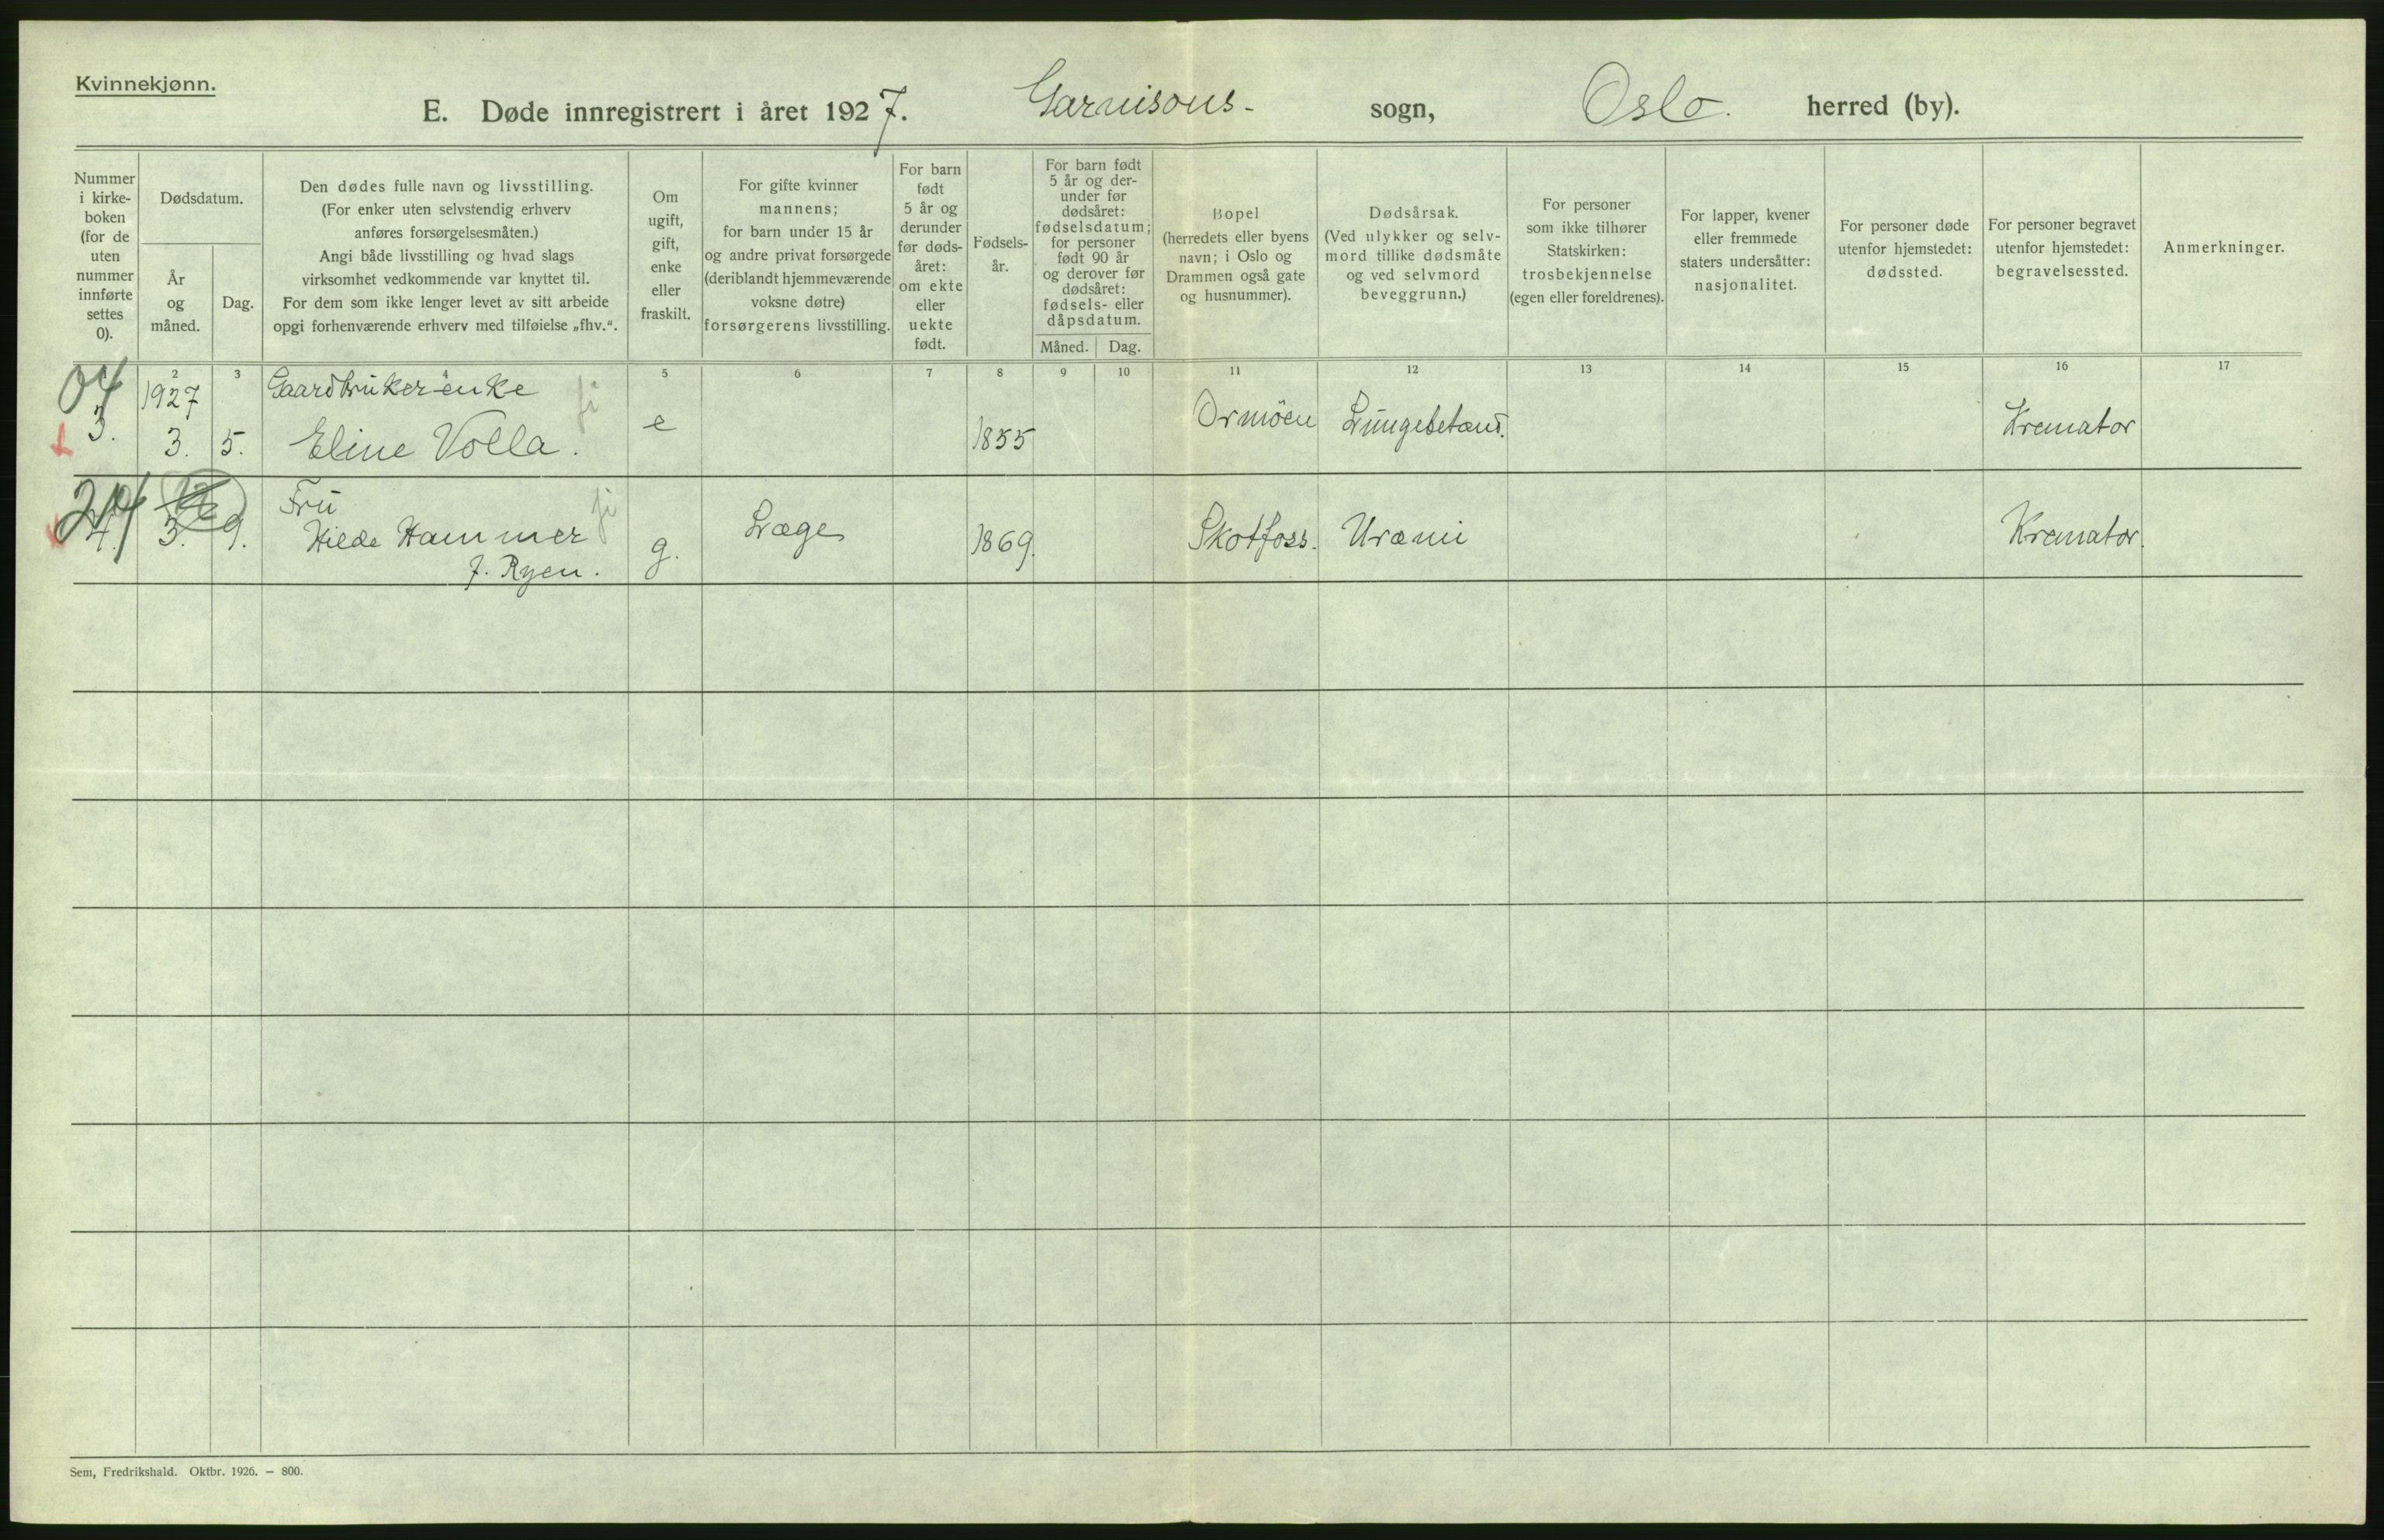 Kvinnekjønn.
E. Døde innregistrert i året 1927. Garnisons- sogn, Oslo. herred (by).
Nummer
i kirke-
boken
(for de
uten
nummer
innførte
settes
0).
Dødsdatum.
År
og
måned.
Dag.
Den dødes fulle navn og livsstilling.
(For enker uten selvstendig erhverv
anføres forsørgelsesmåten.)
Angi både livsstilling og hvad slags
virksomhet vedkommende var knyttet til.
For dem som ikke lenger levet av sitt arbeide
opgi forhenværende erhverv med tilføielse „fhv.“.
Om
ugift,
gift,
enke
eller
fraskilt.
For gifte kvinner
mannens;
for barn under 15 år
og andre privat forsørgede
(deriblandt hjemmeværende
voksne døtre)
forsørgerens livsstilling.
For barn
født
5 år og
derunder
før døds-
året:
om ekte
eller
uekte
født.
Fødsels-
år.
For barn født
5 år og der-
under før
dødsåret:
fødselsdatum;
for personer
født 90 år
og derover før
dødsåret:
fødsels- eller
dåpsdatum.
Måned. Dag.
Bopel
(herredets eller byens
navn; i Oslo og
Drammen også gate
og husnummer).
Dødsårsak.
(Ved ulykker og selv-
mord tillike dødsmåte
og ved selvmord
beveggrunn.)
For personer
som ikke tilhører
Statskirken:
trosbekjennelse
(egen eller foreldrenes).
For lapper, kvener
eller fremmede
staters undersåtter:
nasjonalitet.
For personer døde
utenfor hjemstedet:
dødssted.
For personer begravet
utenfor hjemstedet:
begravelsessted.
Anmerkninger.
2 3 5 6 7 8 9 10 11 12 13 14 15 16 17
04 1927 Gaardbruker-enke
3. 3. 5. Eline Volla. e 1855 Ormöen Lungebetænd. Kremator
Fru
4. 3. 9. Hilde Hammer g. Læge 1869. Skotfoss. Uræmi Kremator.
f. Ryen.
Sem, Fredrikshald. Oktbr. 1926. – 800.